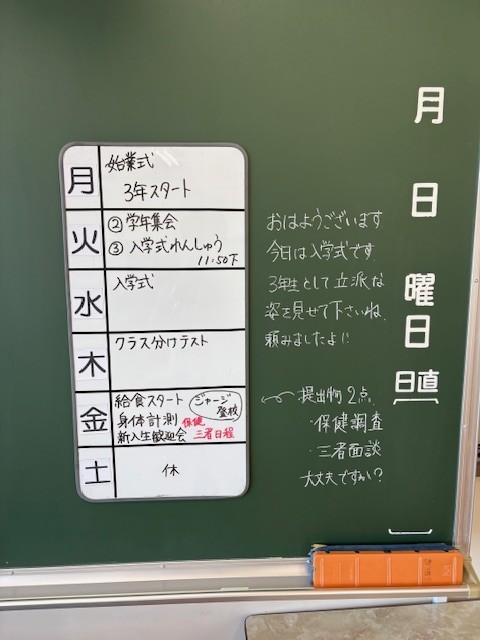 月
始業式
3年スタート
火
② 学年集会
③ 入学式れんしゅう
11:50下
水
入学式
木
クラス分けテスト
金
給食スタート
ジャージ
登校
身体計測 保健
新入生歓迎会 三者日程
土
休
おはようございます
今日は入学式です
3年生として立派な
姿を見せて下さいね。
頼みましたよ!!
提出物2点。
・保健調査
・三者面談
大丈夫ですか?
月
日
曜日
日直